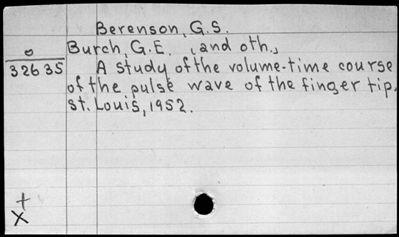 Berenson, G.S.
o Burch, G.E. (and oth.,
32635 A study of the volume-time course
of the pulse wave of the finger tip.
St. Louis, 1952.
+
X